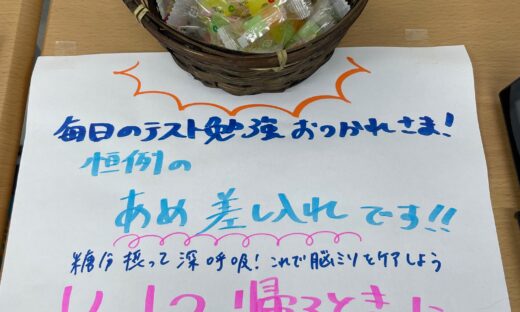 毎日のテスト勉強おつかれさま!
恒例の
あめ差し入れです!!
糖分摂って深呼吸!これで脳ミソをケアしよう
帰るとき